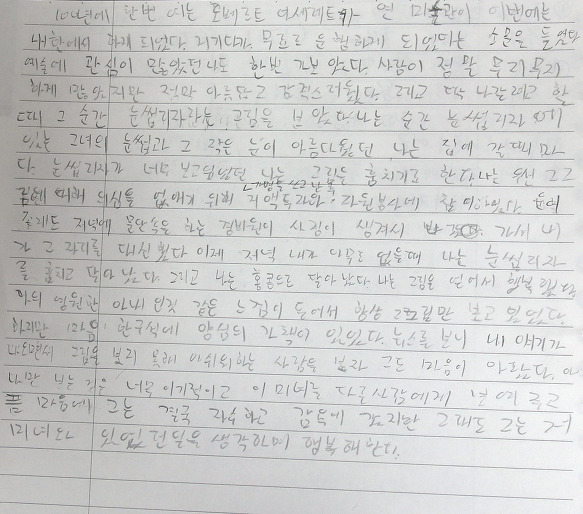 10년에 한번 여는 로베르트 어세레트가 연 미술관이 이번에는
내한에서 하개 되었다. 거기다가 무료로 운행하게 되었다는 소문을 들었다
예술에 관심이 많았던 나도 한번 가보았다. 사람이 정말 무리무리
하게 많았지만 정말 아름답고 감격스러웠다. 그리고 딱 나갈려고 할
때 그 순간 눈썹리자라는 그림을 보았다 나는 순간 눈썹리자에
있는 그녀의 눈썹과 그 작은 눈이 아름다웠던 나는 집에 갈때마
다. 눈썹리자가 너무 보고싶었던 나는 그림을 훔치기로 한다. 나는 우선 그그
림에 대해 의심을 없애기 위해 거액투자와 자원봉사에 참여하였다. 운이
좋게도 저녁에 물단속을 하는 경비원이 사정이 생겨서 가서 내
가 그 자리를 대신했다 이제 저녁 내가 아무로 없을때 나는 눈썹리자
를 훔치고 달아났다. 그리고 나는 홍콩으로 달아났다. 나는 그림을 얻어서 행복했다
마의 영원한 아내인것 같은 느낌이 들어서 항상 그림만 보고 있었다.
하지만 마음 한구석에 양심의 가책이 있었다. 뉴스를 보니 내 얘기가
나오면서 그림을 보지 못해 아쉬워하는 사람을 보자 그도 마음이 아팠다. 아
나만 보는 것은 너무 이기적이고 이 미녀를 다른사람에게 보여 주고
픔 마음에 그는 결국 자수하고 감옥에 갔지만 그래도 그는 저
미녀와 있었던일을 생각하며 행복해한다.